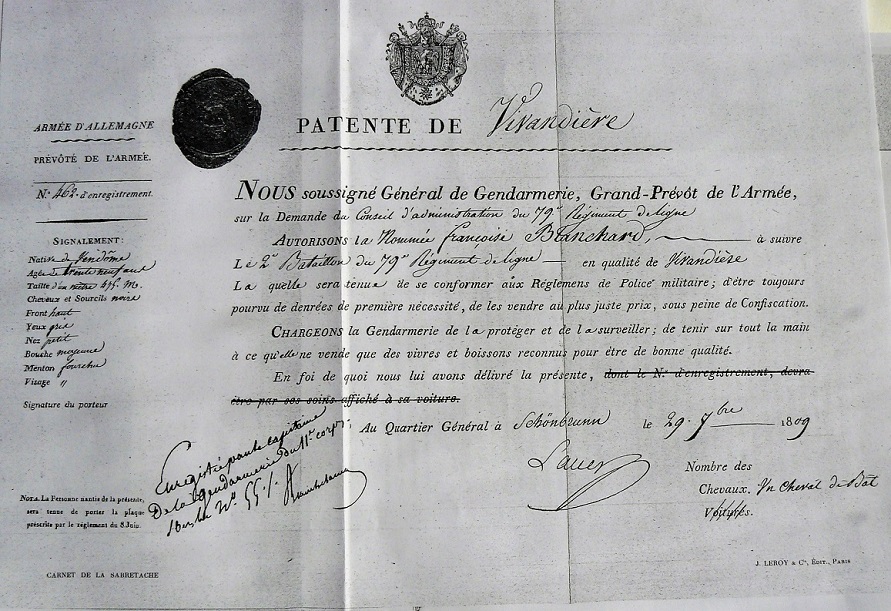 ARMÉE D'ALLEMAGNE
PRÉVÔTÉ DE L'ARMÉE.
N.º 462 d'enregistrement.
SIGNALEMENT:
Native de Vendôme
Agée de trente neuf ans
Taille d'un mètre 475 M.
Cheveux et Sourcils noirs
Front haut
Yeux gris
Nez petit
Bouche moyenne
Menton fourchu
Visage "
Signature du porteur
NOTA. La Personne nantie de la présente,
sera tenue de porter la plaque
prescrite par le réglement du 8 Juin.
CARNET DE LA SABRETACHE
PATENTE DE Vivandière
NOUS soussigné Général de Gendarmerie, Grand-Prévôt de l'Armée,
sur la Demande du Conseil d'administration du 79e Régiment de ligne
AUTORISONS la Nommée françoise Blanchard, à suivre
Le 2e Bataillon du 79e Régiment de ligne en qualité de Vivandière
La quelle sera tenue de se conformer aux Réglemens de Police militaire; d'être toujours
pourvu de denrées de première nécessité, de les vendre au plus juste prix, sous peine de Confiscation.
CHARGEONS la Gendarmerie de la protéger et de la surveiller; de tenir sur tout la main
à ce qu'elle ne vende que des vivres et boissons reconnus pour être de bonne qualité.
En foi de quoi nous lui avons délivré la présente, dont le N.º d'enregistrement, devra
être par ses soins affiché à sa voiture.
Au Quartier Général à Schönbrunn le 29. 7bre 1809
Lauer
Enregistré par le capitaine
De la gendarmerie du 11e corps.
Nº 55
Nombre des
Chevaux. Un Cheval de Bât
Voitures.
J. LEROY & Cie, ÉDIT., PARIS